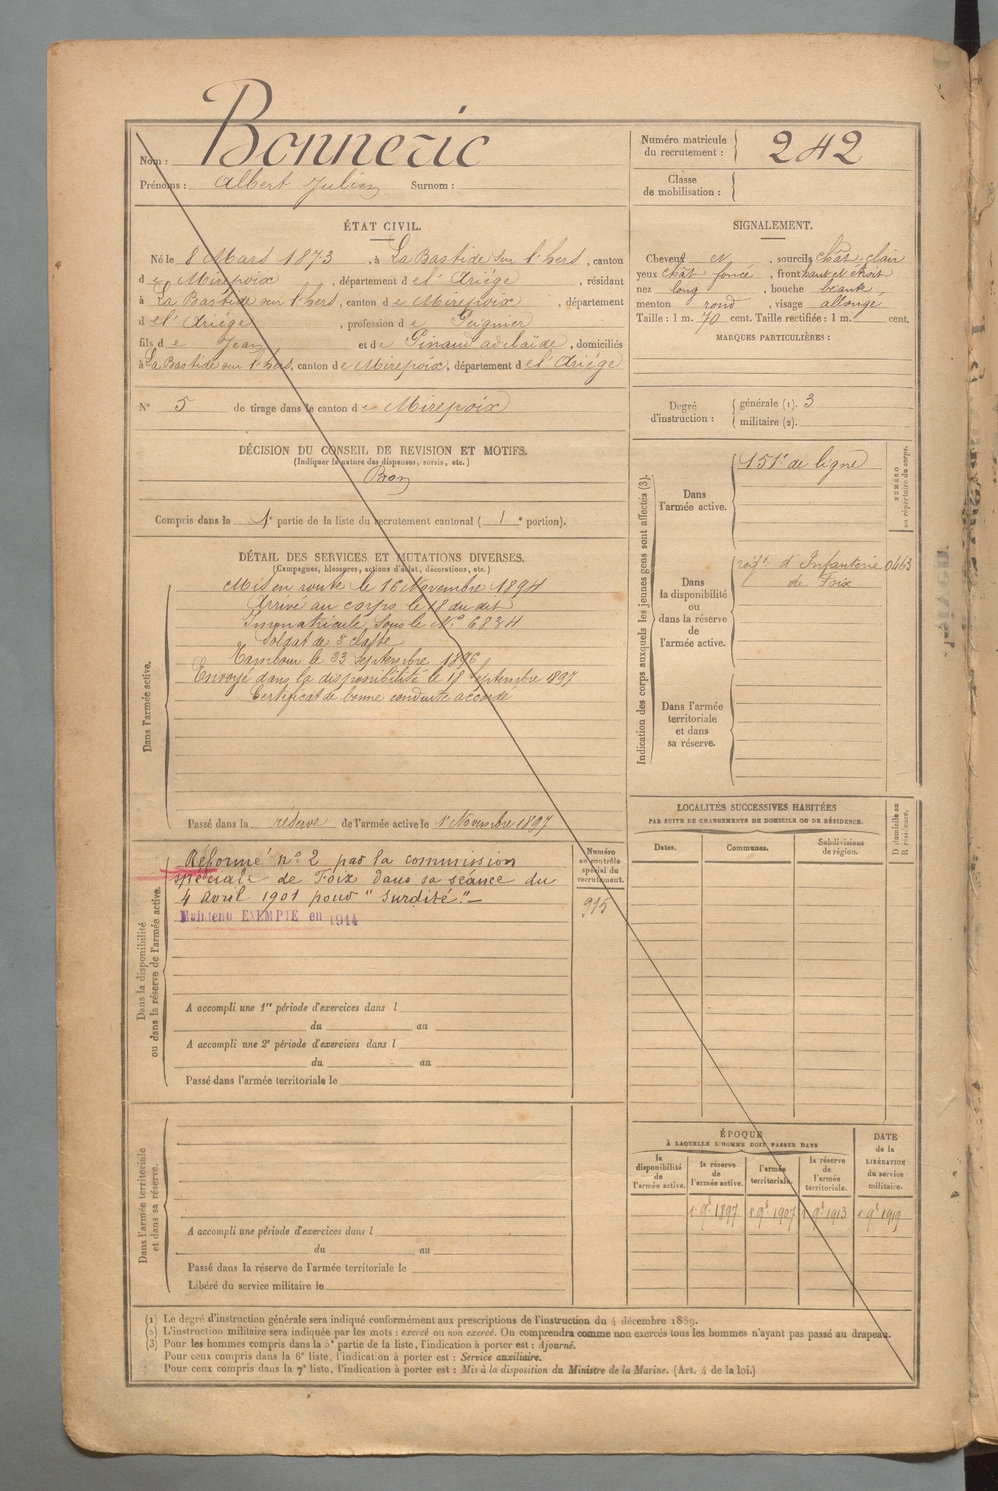 Bonneric
Nom :
Prénoms : Albert Julien Surnom :
Numéro matricule
du recrutement : 242
Classe
de mobilisation :
ÉTAT CIVIL.
Né le 8 Mars 1873, à La Bastide sur l'hers, canton
d e Mirepoix, département d e l'Ariége, résidant
à La Bastide sur l'hers, canton d e Mirepoix, département
d e l'Ariége, profession d e Peignier
fils d e Jean et d e Ginaud adelaïde, domiciliés
à La Bastide sur l'hers, canton d e Mirepoix, département d e l'Ariége
N° 5 de tirage dans le canton d e Mirepoix
SIGNALEMENT.
Cheveux et, sourcils Chât-clair
yeux chât foncé, front haut et étroit
nez long, bouche béante
menton rond, visage allongé
Taille : 1 m. 70 cent. Taille rectifiée : 1 m. cent.
MARQUES PARTICULIÈRES :
Degré
d'instruction :
générale (1). 3
militaire (2).
DÉCISION DU CONSEIL DE REVISION ET MOTIFS.
(Indiquer la nature des dispenses, sursis, etc.)
Bon
Compris dans la 1e partie de la liste du recrutement cantonal ( 1e portion).
DÉTAIL DES SERVICES ET MUTATIONS DIVERSES.
(Campagnes, blessures, actions d'éclat, décorations, etc.)
Dans l'armée active.
Mis en route le 16 Novembre 1894
Arrivé au corps le 18 du dit
Immatriculé sous le N° 6834
Soldat de 2 classe
Tambour le 23 Septembre 1896
Envoyé dans la disponibilité le 18 Septembre 1897
Certificat de bonne conduite accordé
Passé dans la réserve de l'armée active le 1 Novembre 1897
Indication des corps auxquels les jeunes gens sont affectés (3).
NUMÉRO
au répertoire du corps.
Dans
l'armée active.
151e de ligne
Dans
la disponibilité
ou
dans la réserve
de
l'armée active.
régt d'Infanterie 0463
de Foix
Dans l'armée
territoriale
et dans
sa réserve.
Dans la disponibilité
ou dans la réserve de l'armée active.
Réformé n° 2 par la commission
spéciale de Foix dans sa séance du
4 avril 1901 pour "Surdité"
Maintenu EXEMPTÉ en 1914
Numéro
au contrôle
spécial du
recrutement.
915
A accompli une 1re période d'exercices dans l
du au
A accompli une 2e période d'exercices dans l
du au
Passé dans l'armée territoriale le
LOCALITÉS SUCCESSIVES HABITÉES
PAR SUITE DE CHANGEMENTS DE DOMICILE OU DE RÉSIDENCE.
Dates.
Communes.
Subdivisions
de région.
D domicile ou
R résidence.
Dans l'armée territoriale
et dans sa réserve.
A accompli une période d'exercices dans l
du au
Passé dans la réserve de l'armée territoriale le
Libéré du service militaire le
ÉPOQUE
À LAQUELLE L'HOMME DOIT PASSER DANS
la
disponibilité
de
l'armée active.
la réserve
de
l'armée active.
l'armée
territoriale.
la réserve
de
l'armée
territoriale.
DATE
de la
LIBÉRATION
du service
militaire.
1 9e 1897 1 9e 1907 1 9e 1913 1 9e 1919
(1) Le degré d'instruction générale sera indiqué conformément aux prescriptions de l'instruction du 4 décembre 1889.
(2) L'instruction militaire sera indiquée par les mots : exercé ou non exercé. On comprendra comme non exercés tous les hommes n'ayant pas passé au drapeau.
(3) Pour les hommes compris dans la 5e partie de la liste, l'indication à porter est : Ajourné.
Pour ceux compris dans la 6e liste, l'indication à porter est : Service auxiliaire.
Pour ceux compris dans la 7e liste, l'indication à porter est : Mis à la disposition du Ministre de la Marine. (Art. 4 de la loi.)